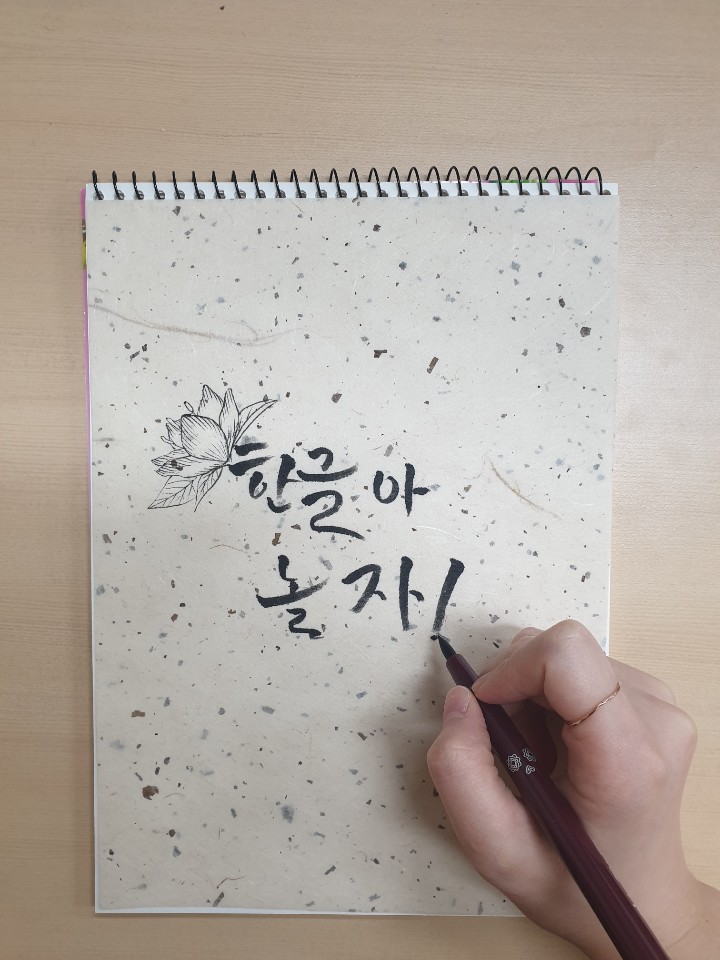 한글아
놀자!